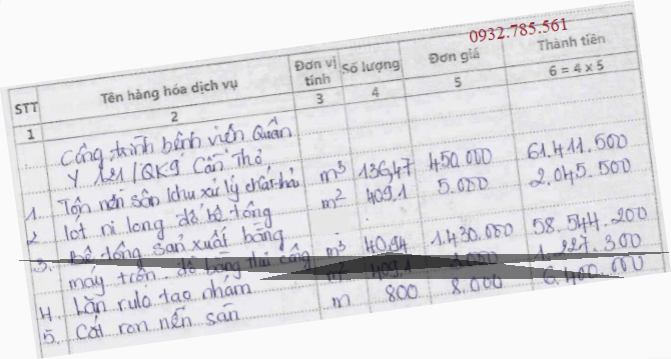 0932.785.561
STT Tên hàng hóa dịch vụ Đơn vị tính Số lượng Đơn giá Thành tiền
1 2 3 4 5 6 = 4 x 5
Công trình bệnh viện Quân
Y 121/QK9 Cần Thơ
1 Tôn nền sân khu xử lý chất thải m³ 136,47 450.000 61.411.500
2 lót ni long đổ bê tông m² 409,1 5.000 2.045.500
3. Bê tông sản xuất bằng
máy trộn, đổ bằng thủ công m³ 40,94 1.430.000 58.544.200
4. Lăn rulo tạo nhám m² 409,1 3.000 1.227.300
5. Cắt ron nền sân m 800 8.000 6.400.000